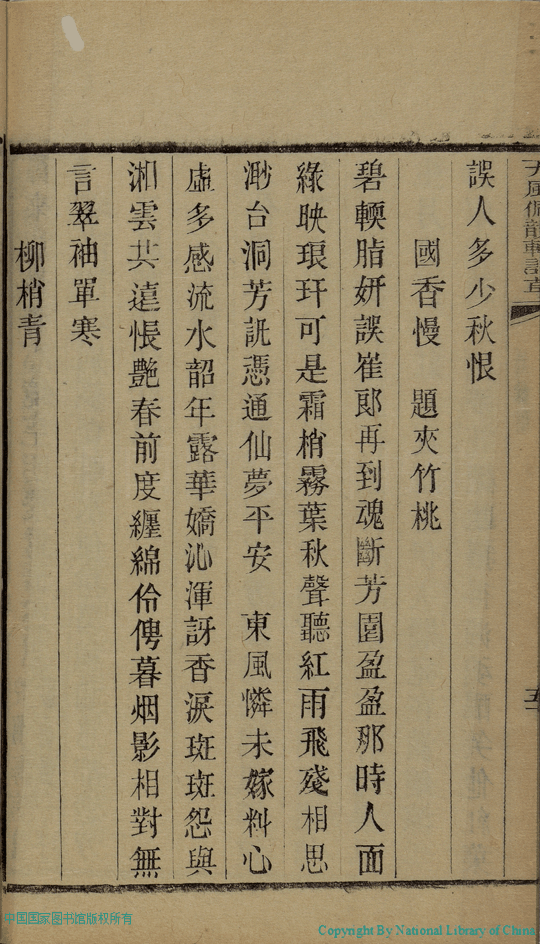 誤人多少秋恨
國香慢　題夾竹桃
碧輭脂妍誤崔郎再到魂斷芳園盈盈那時人面
綠映琅玕可是霜梢霧葉秋聲聽紅雨飛殘相思
渺台洞芳訊憑通仙夢平安　東風憐未嫁料心
虛多感流水韶年露華嬌沁渾訝香淚斑斑怨與
湘雲共遠悵艷春前度纏綿伶俜暮烟影相對無
言翠袖單寒
柳梢青
中国国家图书馆版权所有
Copyright By National Library of China